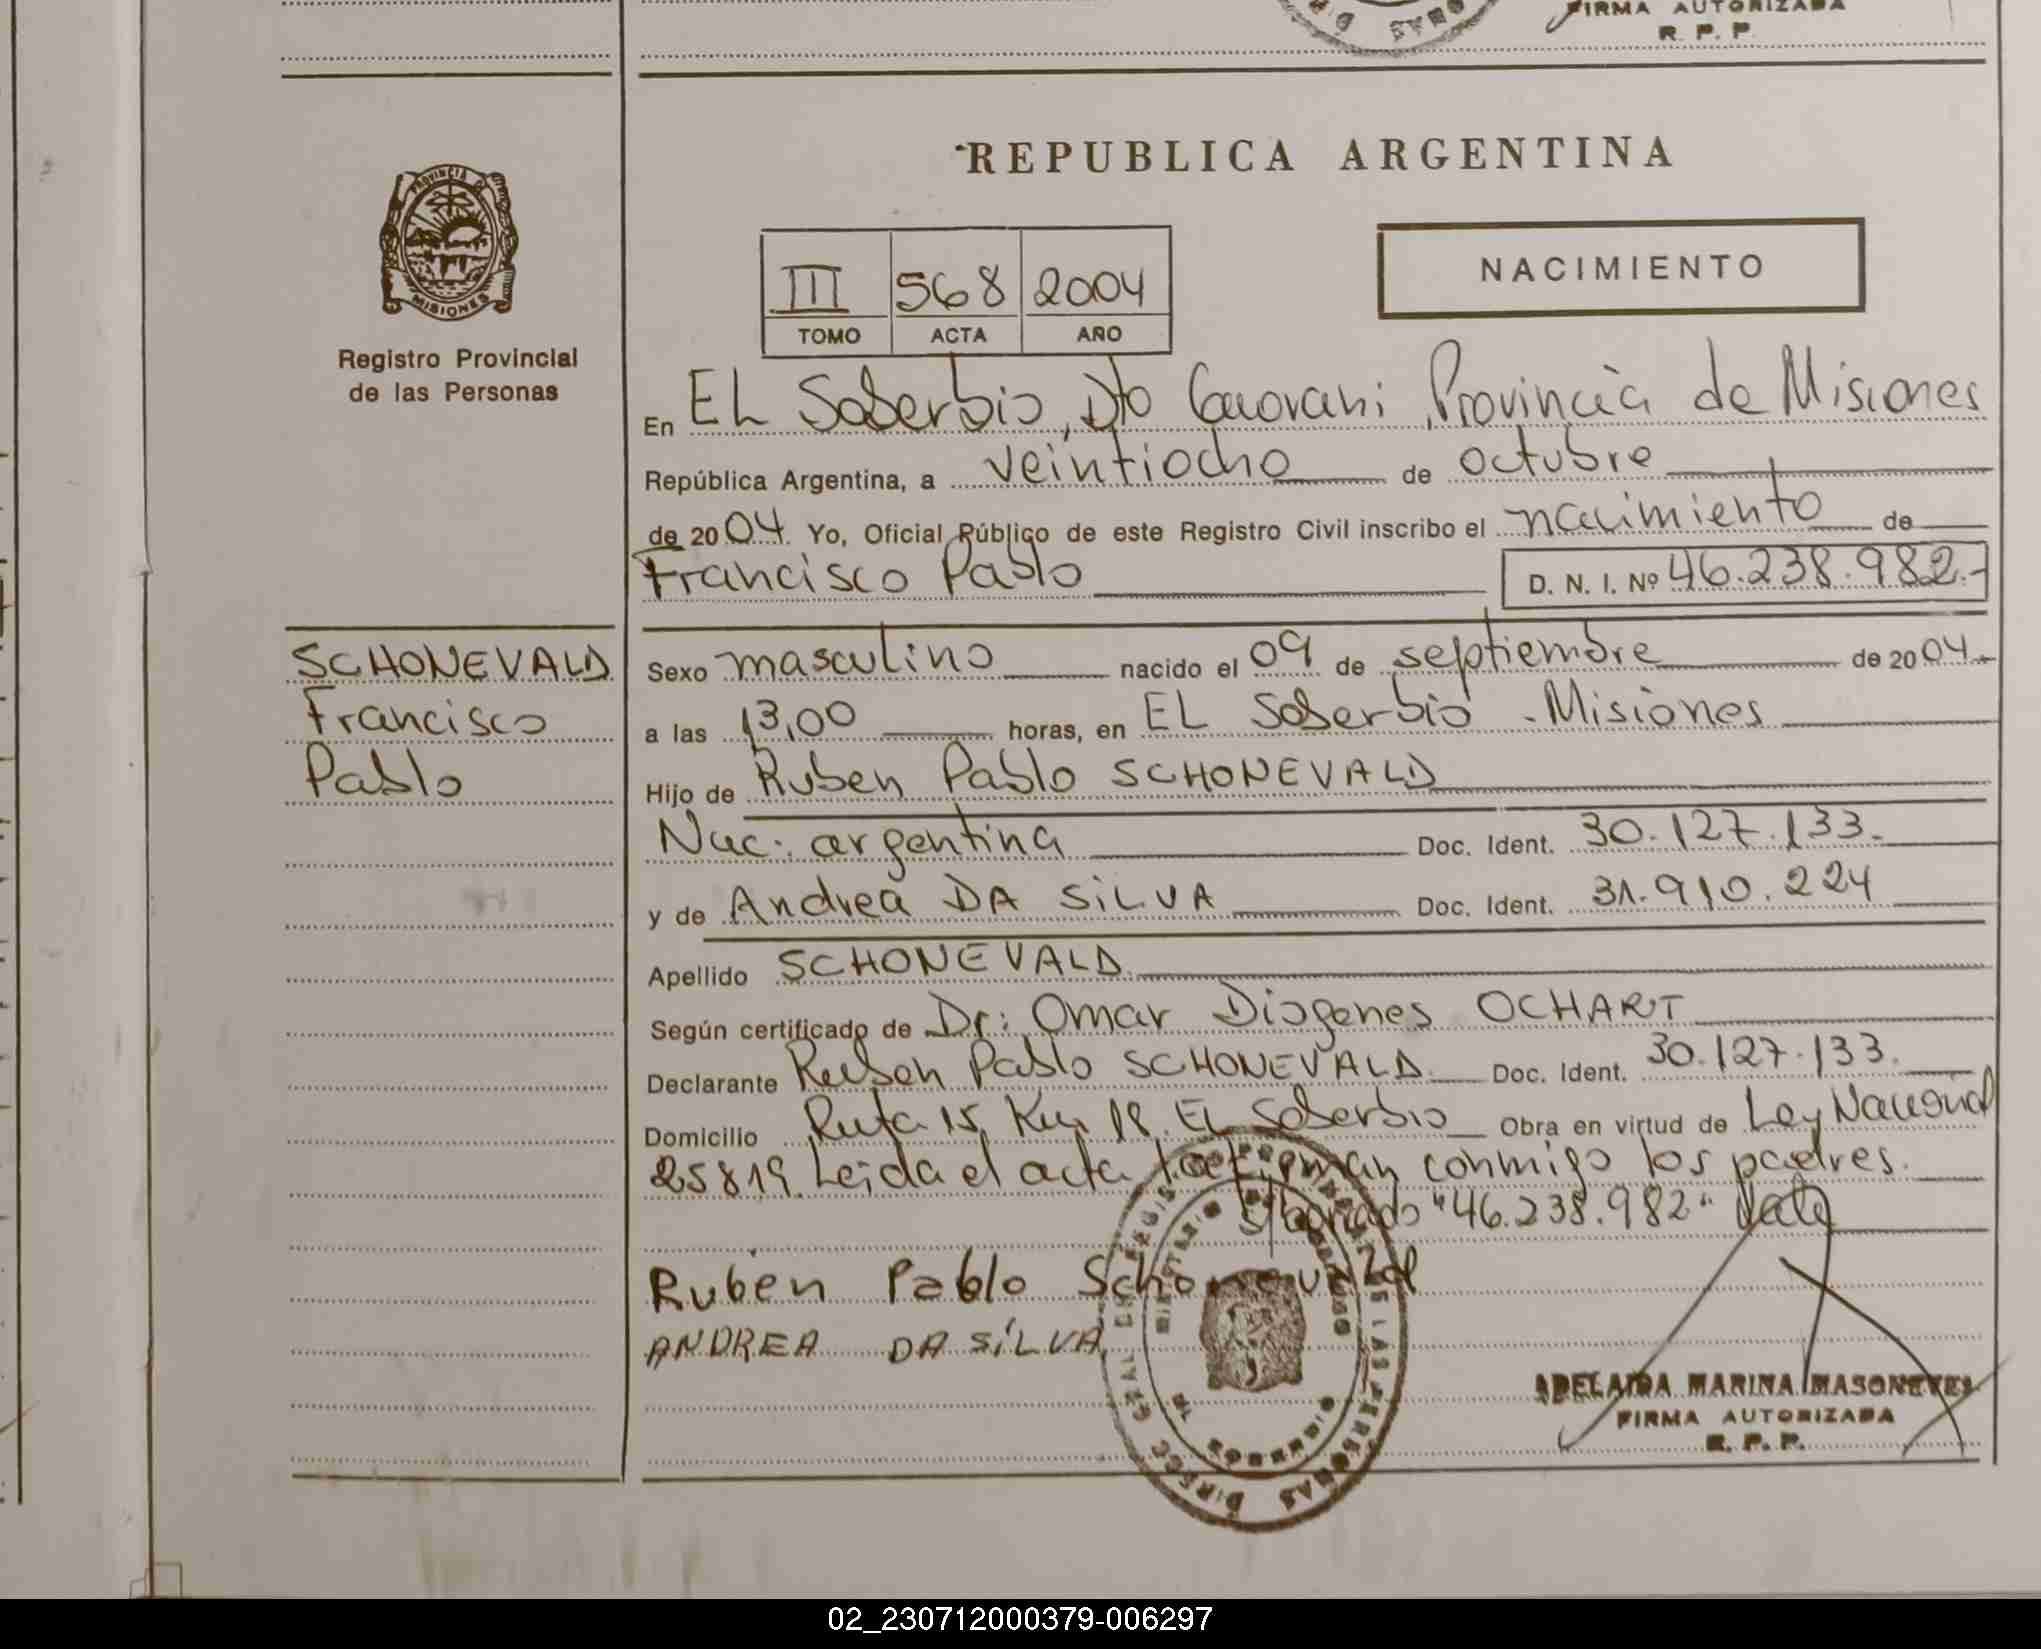 FIRMA AUTORIZADA
R. P. P.
PROVINCIA DE
MISIONES
Registro Provincial
de las Personas
REPUBLICA ARGENTINA
NACIMIENTO
III 568 2004
TOMO ACTA AÑO
En EL Soberbio, Dto Guarani, Provincia de Misiones
República Argentina, a veintiocho de octubre
de 2004. Yo, Oficial Público de este Registro Civil inscribo el nacimiento de
Francisco Pablo D. N. I. Nº 46.238.982.-
SCHONEVALD
Francisco
Pablo
Sexo masculino nacido el 09 de septiembre de 2004
a las 13,00 horas, en EL Soberbio - Misiones
Hijo de Ruben Pablo SCHONEVALD
Nac: argentina Doc. Ident. 30.127.133.
y de Andrea DA SILVA Doc. Ident. 31.910.224
Apellido SCHONEVALD
Según certificado de Dr: Omar Diogenes OCHART
Declarante Ruben Pablo SCHONEVALD Doc. Ident. 30.127.133.
Domicilio Ruta 15, Km 18. EL Soberbio Obra en virtud de Ley Nacional
25819. Leida el acta firman conmigo los padres.
s/borrado "46.238.982" Vale
Ruben Pablo Schonevald
ANDREA DA SILVA
ADELAIDA MARINA MASONEVES
FIRMA AUTORIZADA
R. P. P.
02_230712000379-006297